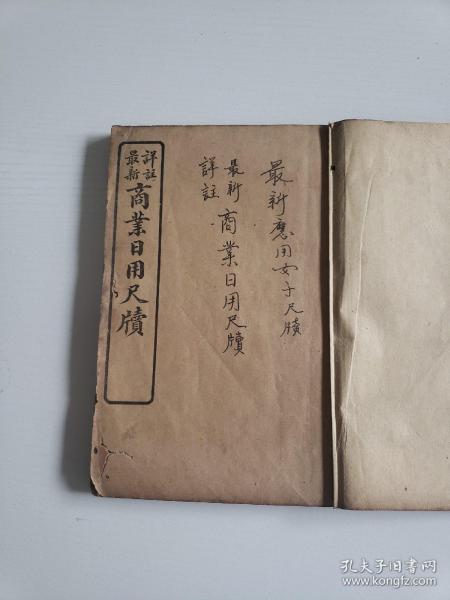 最新應用女子尺牘
最新
詳註
商業日用尺牘
詳註
最新
商業日用尺牘
孔夫子旧书网
www.kongfz.com